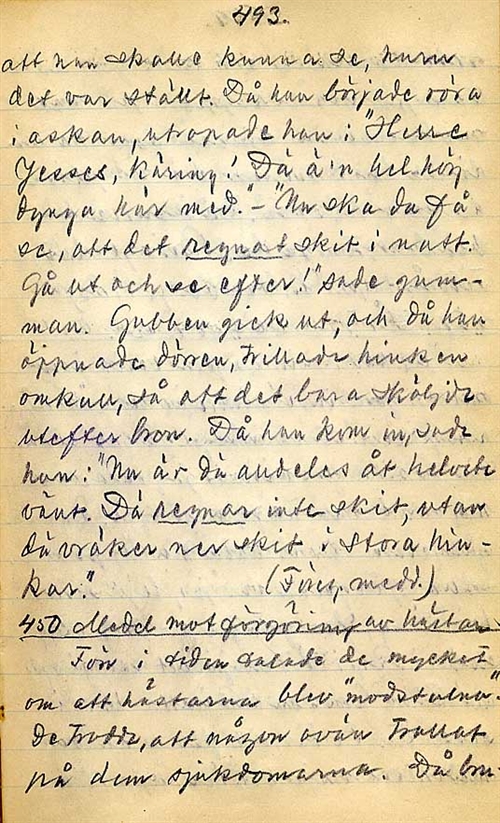 493.
att han skulle kunna se, huru
det var ställt. Då han började röra
i askan, utropade han: "Herre
Jesses, käring! Dä ä'n hel hög
dynga här med." – "Nu ska du få
se, att det regnat skit i natt.
Gå ut och se efter!" sade gum-
man. Gubben gick ut, och då han
öppnade dörren, trillade hinken
omkull, så att det bara sköljde
utefter bron. Då han kom in, sade
han: "Nu är dä andeles åt helvete
vänt. Dä regnar inte skit, utan
dä vräker ner skit i stora hin-
kar."
(Förr. medd.)
450 Medel mot förgöring av hästar
Förr i tiden talade de mycket
om att hästarna blev "modstulna".
De trodde, att någon ovän trollat
på dem sjukdomarna. Då bru-